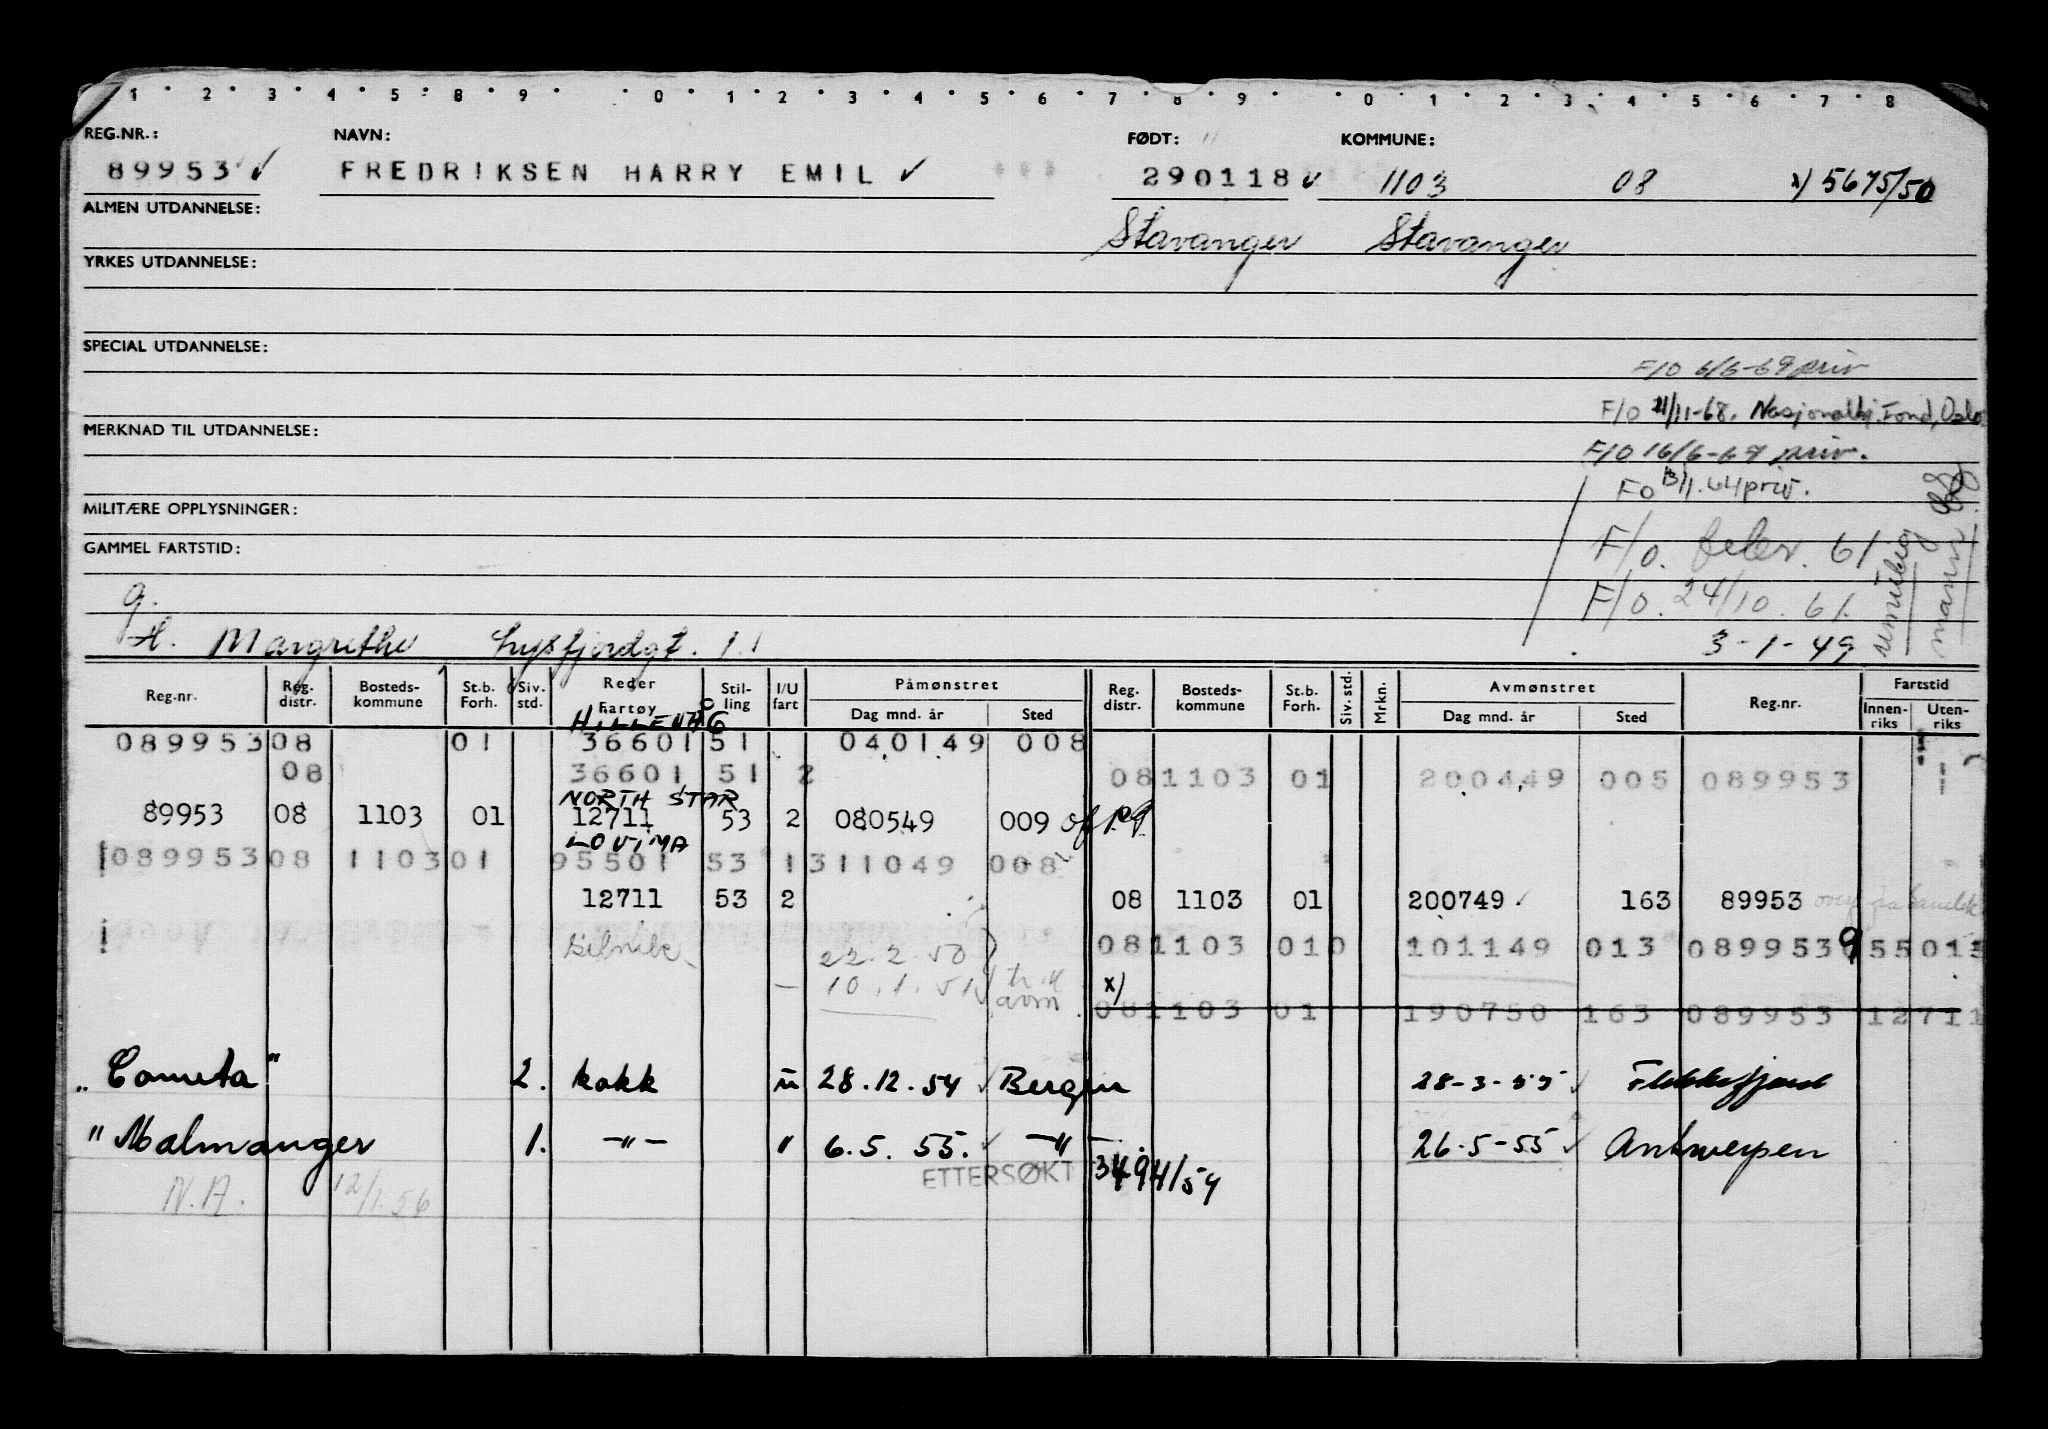 1 2 3 4 5 8 9 0 1 2 3 4 5 6 7 8 9 0 1 2 3 4 5 6 7 8
REG.NR.: NAVN: FØDT: KOMMUNE:
89953 ✓ FREDRIKSEN HARRY EMIL ✓ 290118 ✓ 1103 08 x) 5675/50
ALMEN UTDANNELSE: Stavanger Stavanger
YRKES UTDANNELSE:
SPECIAL UTDANNELSE:
F/O 6/6-69 priv
F/O 21/11-68. Nasjonalhj. Fond, Oslo
MERKNAD TIL UTDANNELSE:
F/O 16/6-67 priv.
Fo 13/1.64 priv.
MILITÆRE OPPLYSNINGER:
F/o. 61
GAMMEL FARTSTID:
F/o. 24/10. 61.
g.
H. Margrethe Lysfjordgt. 11 3-1-49
Reg.nr. Reg. distr. Bosteds-kommune St.b. Forh. Siv. std. Reder Fartøy Stil-ling I/U fart Påmønstret Dag mnd. år Sted Reg. distr. Bosteds-kommune St.b. Forh. Siv. std. Mrkn. Avmønstret Dag mnd. år Sted Reg.nr. Fartstid Innen-riks Uten-riks
HILLEVÅG
089953 08 01 36601 51 040149 008
08 36601 51 2 08 1103 01 200449 005 089953
NORTH STAR
89953 08 1103 01 12711 53 2 080549 009
LOVIMA
089953 08 1103 01 95501 53 1 311049 008
12711 53 2 08 1103 01 200749 163 89953
22.2.50 08 1103 01 0 101149 013 089953 9 55013
10.1.51 avm x)
08 1103 01 190750 163 089953 12711
"Cometa" 2. kokk u 28.12.54 ✓ Bergen 28-3-55 ✓ Flekkefjord
"Malmanger 1. —"— " 6.5.55. ✓ —"— 26.5-55 ✓ Antwerpen
ETTERSØKT 3494/54
N.A. 12/1.56